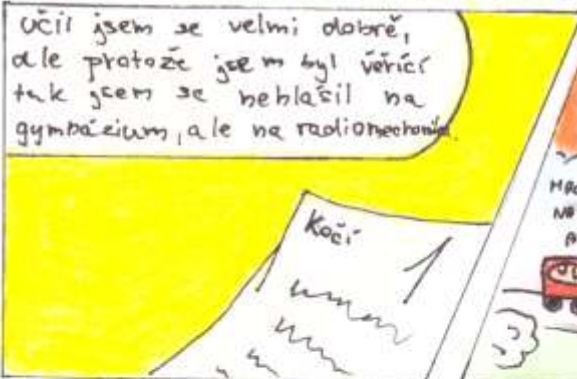 učil jsem se velmi dobře,
ale protože jsem byl věřící
tak jsem se nehlásil na
gymnázium, ale na radiomechanika.
Kočí
1